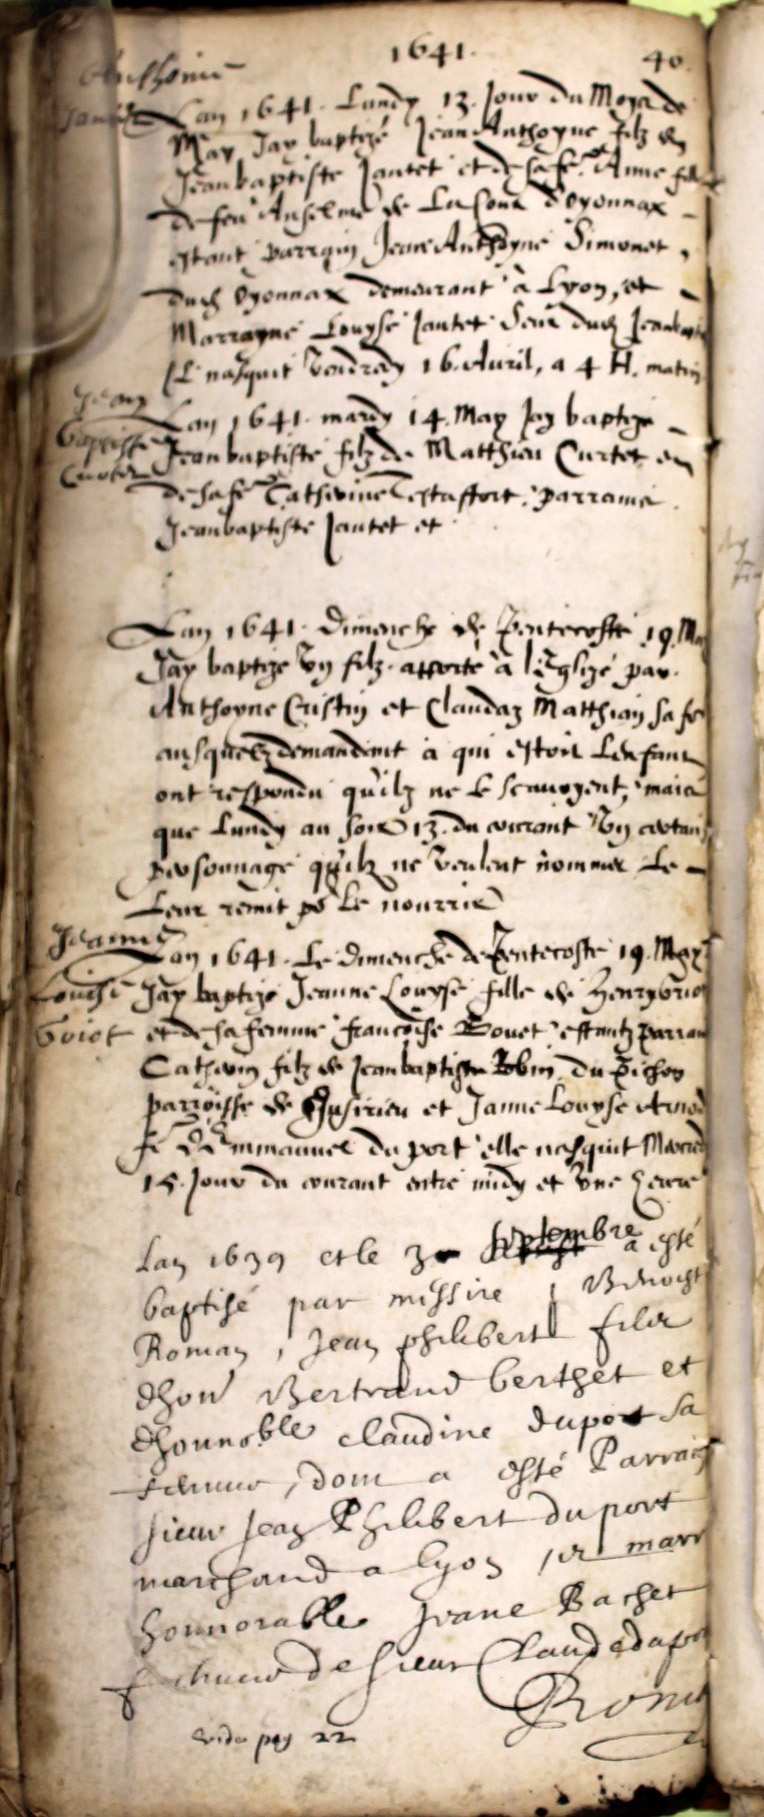 1641. 40
Anthoine
Jantet
Lan 1641. Lundy 13. Jour du Moys de
May Jay baptizé Jean Anthoyne filz de
Jeanbaptiste Jantet et de sa fe. Anne fille
de feu Anselme de La Cour d'Oyonnax
estant parrain Jean Anthoyne Simonet,
dud. Oyonnax demeurant à Lyon, et
Marrayne Louyse Jantet seur dud. Jeanbaptiste
Il nasquit Vendredy 16. Avril, a 4 H. matin
Jean
Baptiste
Curtet
Lan 1641. mardy 14. May Jay baptizé
Jeanbaptiste filz de Matthieu Curtet et
de sa fe Catherine parrain
Jeanbaptiste Jantet et
Lan 1641. dimenche de Pentecoste 19. May
Jay baptize Vn filz. apporté à l'Eglize par
Anthoyne Cristin et Claudaz Matthian sa fe
ausquelz demandant à qui estoit Lenfant
ont respondu quilz ne le scavoyent, mais
que Lundy au soir 13. du courant Vn certain
personnage quilz ne veulent nommer Le
Leur remit po Le nourrir
Jeanne
Louise
Goiot
Lan 1641. Le dimenche de Pentecoste 19. May
Jay baptize Jeanne Louyse fille de Henry
et de sa femme francoise Bouet estantz parrain
Cathein filz de Jeanbaptiste Robin du Pichon
parroisse de et Janne Louyse
fe d'Emmanuel du port elle nasquit Mecred
15. Jour du courant entre midy et Vne heure
Lan 1639 et le 30 septembre a esté
baptisé par missire Benoist
Roman, Jean philibert filz
dhon Bertrand berthet et
dhonnoble claudine duport sa
femme, dont a esté Parrain
sieur Jean Philibert duport
marchand a lyon, et marr
honnorable Jeane Bachet
femme de sieur Claude duport
Rom
vide pag 22